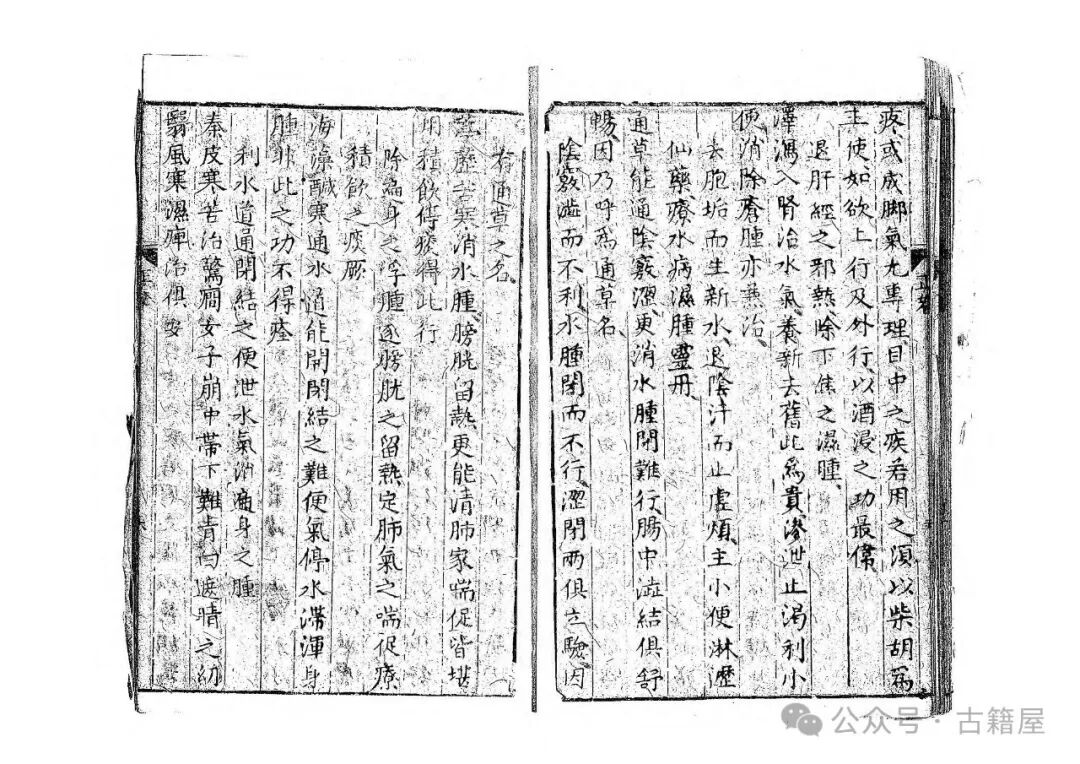 疼或成脚氣尤專理目中之疾若用之須以柴胡爲
主使如欲上行及外行以酒浸之功最偉
退肝經之邪熱除下焦之濕腫
澤瀉入腎治水氣養新去舊此爲貴滲泄止渴利小
便消除瘡腫亦兼治
去胞垢而生新水退陰汗而止虛煩主小便淋瀝
仙藥療水病濕腫靈丹
通草能通陰竅澀更消水腫閉難行腸中澁結俱舒
暢因乃呼爲通草名
陰竅澁而不利水腫閉而不行澀閉兩俱立驗因
有通草之名
歷苦寒消水腫膀胱留熱更能清肺家喘促皆堪
用積飲停痰得此行
除遍身之浮腫逐膀胱之留熱定肺氣之喘促療
積飲之痰厥
海藻鹹寒通水道能開閉結之難便氣停水滯渾身
腫非此之功不得痊
利水道通閉結之便泄水氣消遍身之腫
秦皮寒苦治驚癇女子崩中帶下難青白遮睛之幼
翳風寒濕痺治俱安
公众号·古籍屋